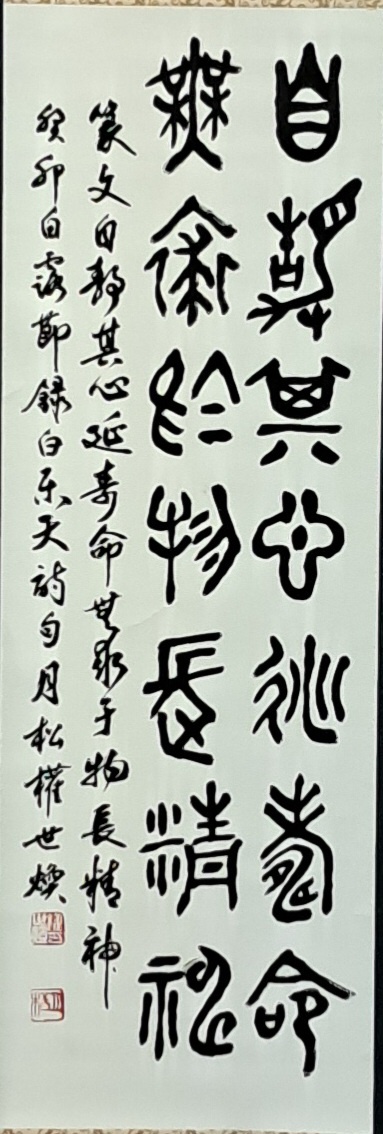 自靜其心延壽命
無求於物長精神
篆文自靜其心延壽命無求于物長精神
癸卯白露節錄白乐天詩句月松權世煥